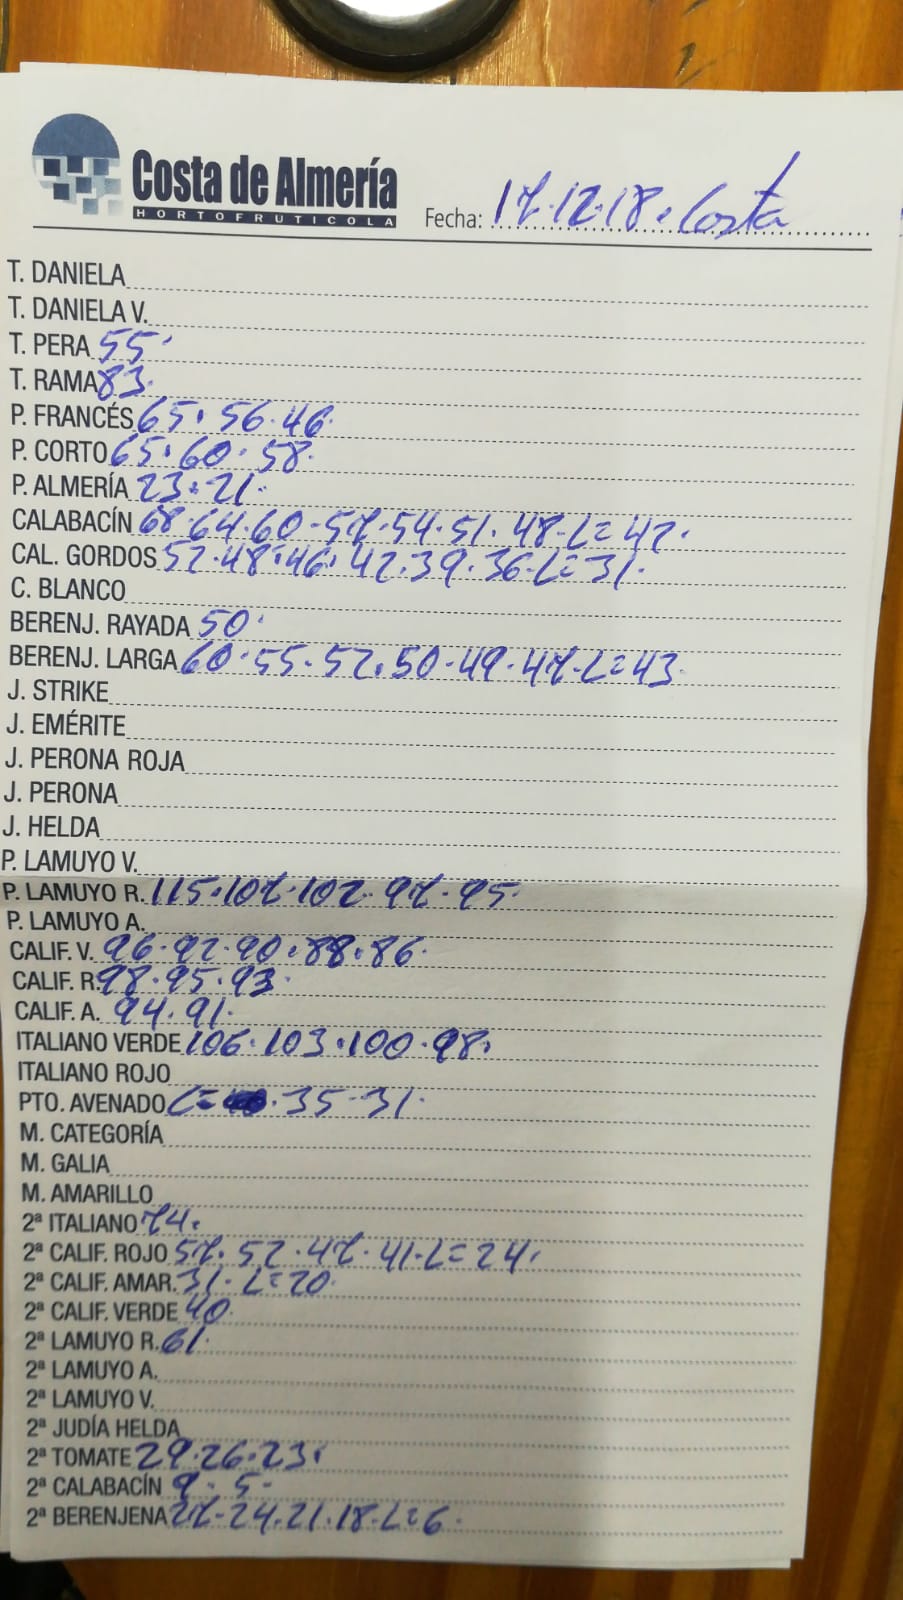 Costa de Almería
HORTOFRUTICOLA
Fecha: 17.12.18. Costa
T. DANIELA
T. DANIELA V.
T. PERA 55.
T. RAMA 83.
P. FRANCÉS 65. 56. 46.
P. CORTO 65. 60. 58.
P. ALMERÍA 23. 21.
CALABACÍN 68. 64. 60. 57. 54. 51. 48. L= 42.
CAL. GORDOS 52. 48. 46. 42. 39. 36. L= 31.
C. BLANCO
BERENJ. RAYADA 50.
BERENJ. LARGA 60. 55. 52. 50. 49. 47. L= 43.
J. STRIKE
J. EMÉRITE
J. PERONA ROJA
J. PERONA
J. HELDA
P. LAMUYO V.
P. LAMUYO R. 115. 107. 102. 97. 95.
P. LAMUYO A.
CALIF. V. 96. 92. 90. 88. 86.
CALIF. R. 98. 95. 93.
CALIF. A. 94. 91.
ITALIANO VERDE 106. 103. 100. 98.
ITALIANO ROJO
PTO. AVENADO L= . 35. 31.
M. CATEGORÍA
M. GALIA
M. AMARILLO
2ª ITALIANO 74.
2ª CALIF. ROJO 57. 52. 47. 41. L= 24.
2ª CALIF. AMAR. 31. L= 20.
2ª CALIF. VERDE 40.
2ª LAMUYO R. 61.
2ª LAMUYO A.
2ª LAMUYO V.
2ª JUDÍA HELDA
2ª TOMATE 29. 26. 23.
2ª CALABACÍN 9. 5.
2ª BERENJENA 27. 24. 21. 18. L= 6.